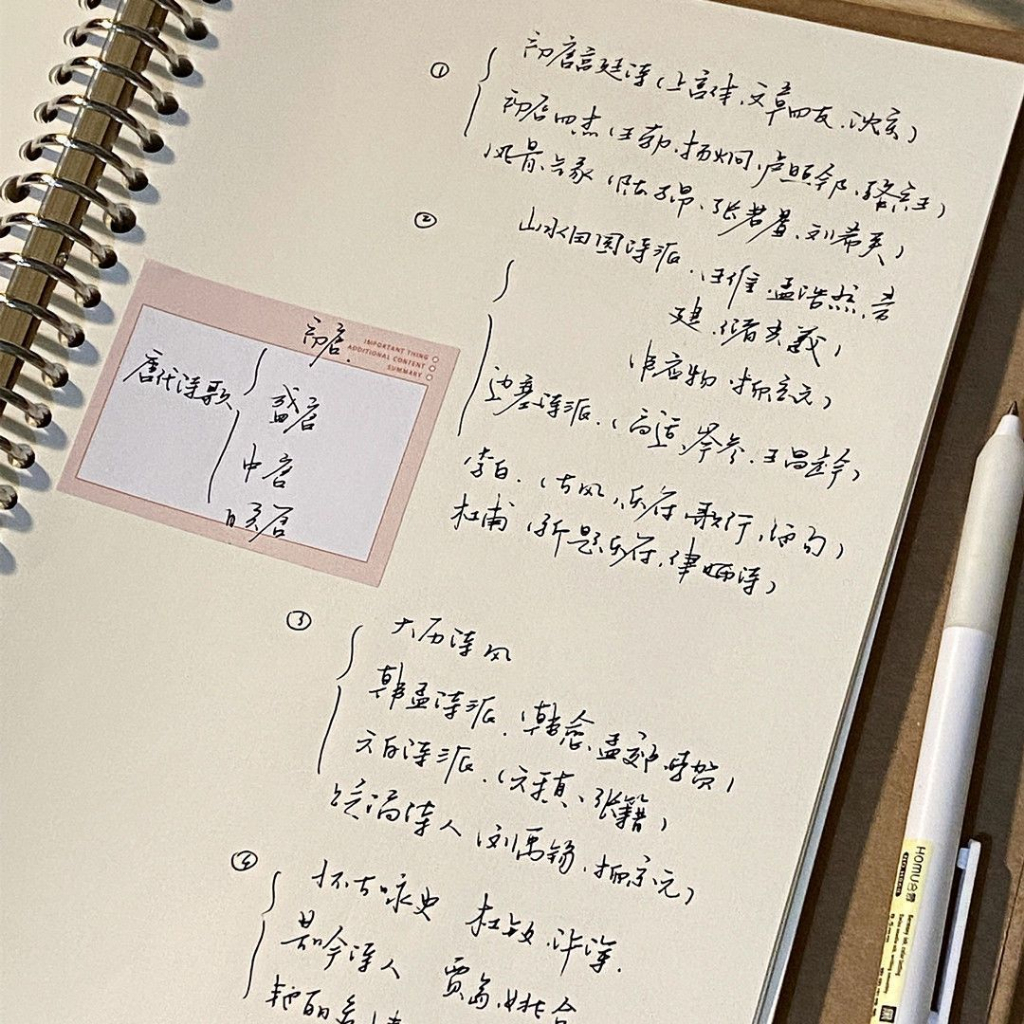 ①
初唐宫廷诗(上官体、文章四友、沈宋)
初唐四杰(王勃、杨炯、卢照邻、骆宾王)
风骨 (陈子昂、张若虚、刘希夷)
②
山水田园诗派(王维、孟浩然、常
建、储光羲)
韦应物 柳宗元
边塞诗派(高适、岑参、王昌龄)
李白(古风、乐府、歌行、绝句)
杜甫(新题乐府、律诗)
IMPORTANT THING
ADDITIONAL CONTENT
SUMMARY
唐代诗歌
初唐
盛唐
中唐
晚唐
③
大历诗风
韩孟诗派(韩愈、孟郊、李贺)
元白诗派(元稹、张籍)
诗人(刘禹锡、柳宗元)
④
怀古咏史 杜牧、许浑
苦吟诗人 贾岛、姚合
艳丽
HOMU